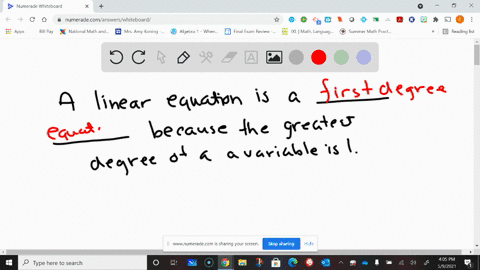 Numerade Whiteboard
numerade.com/answers/whiteboard/
Apps
Bill Pay
National Math and
Mrs. Amy Koning
Algebra 1 - Whenev
Final Exam Review
IXL | Math, Languag
Summer Math Pract
Reading list
A linear equation is a first degree
equat. because the greates
degree of a a variable is 1.
www.numerade.com is sharing your screen.
Stop sharing
Hide
Type here to search
4:05 PM
5/9/2021